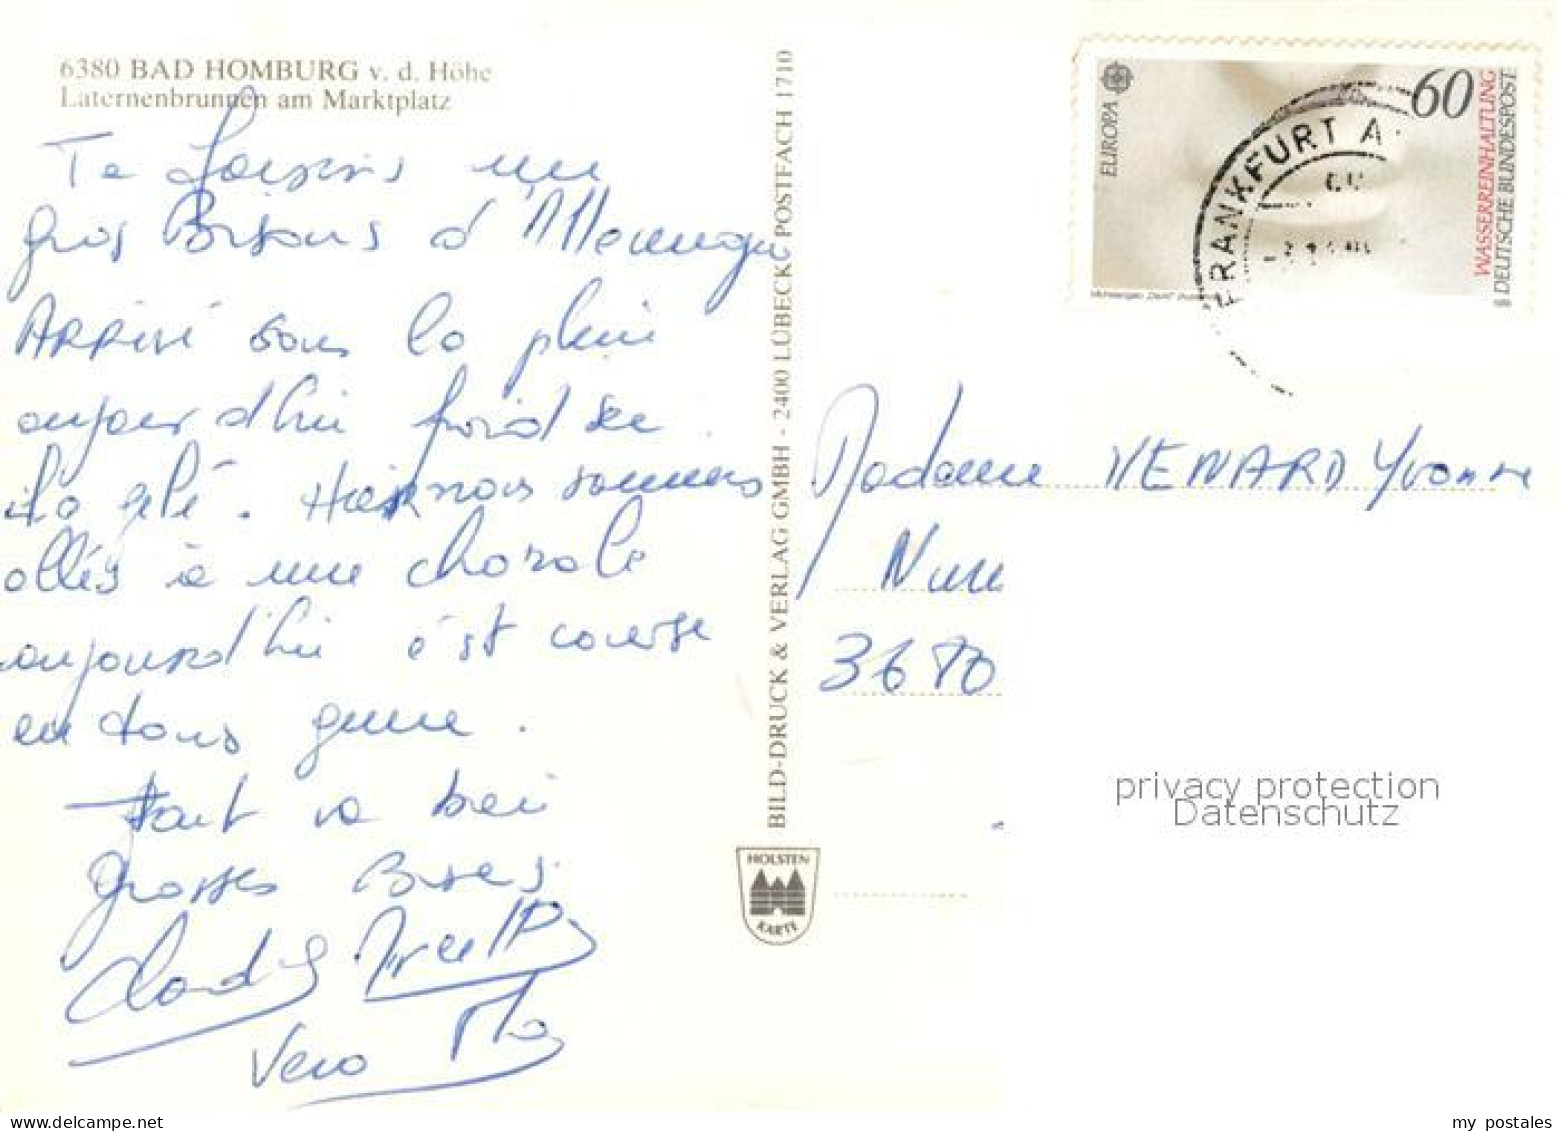 6380 BAD HOMBURG v. d. Höhe
Laternenbrunnen am Marktplatz
Te faisons un
gros Bisous d'Allemagne
ARRIVÉ sous la pluie
aujourd'hui froid sec
il a gelé. Hier nous sommes
allés à une chorale
aujourd'hui c'est course
en tous genre.
tout va bien
Grosses Bises.
Vero
BILD-DRUCK & VERLAG GMBH - 2400 LÜBECK, POSTFACH 1710
HOLSTEN
KARTE
EUROPA
60
WASSERREINHALTUNG
DEUTSCHE BUNDESPOST
FRANKFURT A
Madame VENARD Yvonne
3680
privacy protection
Datenschutz
my postales